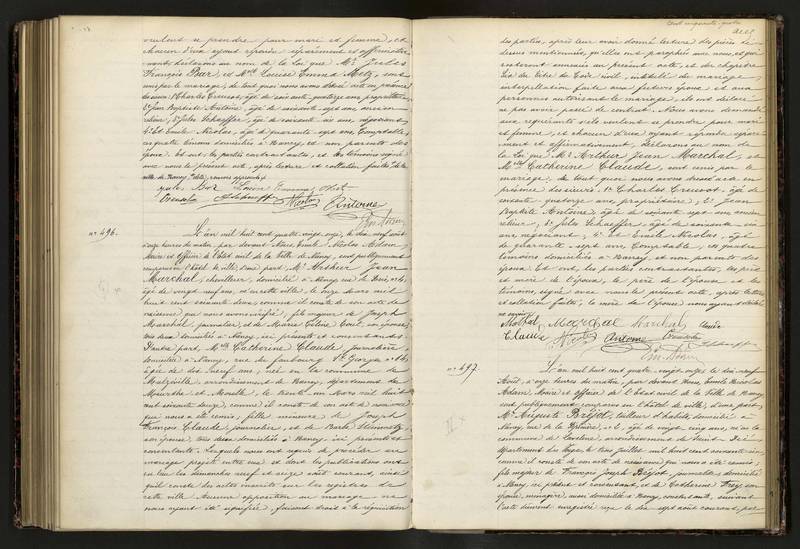 veulent se prendre pour mari et femme, et
chacun d'eux ayant répondu séparément et affirmative-
ment, déclarons au nom de la loi que Mr Jules
François Bar, et Mlle Louise Emma Metz, sont
unis par le mariage, de tout quoi nous avons dressé acte en présence
Charles Creusot, âgé de soixante quatorze ans, propriétaire,
2° Jean Baptiste Antoine, âgé de soixante sept ans, ancien
relieur, 3° Jules Schaeffer, âgé de soixante six ans, négociant,
4° Emile Nicolas, âgé de quarante sept ans, Comptable,
les quatre témoins domiciliés à Nancy, et non parents des
époux. Et ont, les parties contractantes, et les témoins signé
avec nous le présent acte, après lecture et collation faites
Jules Bar Louise Emma
Creusot Schaeffer Nicolas Antoine
n° 496. L'an mil huit cent quatre vingt onze, le dix neuf août
onze heures du matin, par devant Nous, Emile Nicolas Adam,
Maire et officier de l'état civil de la Ville de Nancy, sont publiquement
comparus à l'hôtel de ville, d'une part, Mr Arthur Jean
Marchal, domicilié à Nancy,
âgé de vingt neuf ans, né en cette ville, le onze mars mil
huit cent soixante deux, comme il conste de son acte de
naissance que nous avons vérifié, fils majeur de Joseph
Marchal, journalier, et de Marie Céline son épouse,
tous deux domiciliés à Nancy, ici présents et consentants
D'autre part, Mlle Catherine Claude, journalière,
domiciliée à Nancy, rue du faubourg St Georges, n° 16,
âgée de dix neuf ans, née en la commune de
Malzéville, arrondissement de Nancy, département de
Meurthe et Moselle, le trente un Mars mil huit
cent soixante douze, comme il conste de son acte de naissance
qui nous a été remis, fille mineure de Joseph
François Claude, journalier, et de Barbe
son épouse, tous deux domiciliés à Nancy, ici présents et
consentants. Lesquels nous ont requis de procéder au
mariage projeté entre eux, et dont les publications ont
eu lieu les dimanches neuf et seize août courant, ainsi
qu'il conste des actes inscrits sur les registres de
cette ville. Aucune opposition au mariage ne
nous ayant été signifiée, faisant droit à la réquisition
Cent cinquante-quatre
des parties, après leur avoir donné lecture des pièces ci-
dessus mentionnées, qu'elles ont paraphées avec nous, et qui
resteront annexées au présent acte, et du chapitre
six du titre du Code civil, intitulé du mariage,
interpellation faite aux futurs époux et aux
personnes autorisant le mariage, ils ont déclaré
ne pas avoir passé de contrat. Nous avons demandé
aux requérants s'ils veulent se prendre pour mari
et femme, et chacun d'eux ayant répondu séparé-
ment et affirmativement, déclarons au nom de
la loi que Mr Arthur Jean Marchal, et
Mlle Catherine Claude, sont unis par le
mariage. De tout quoi nous avons dressé acte en
présence des sieurs 1° Charles Creusot, âgé de
soixante quatorze ans, propriétaire, 2° Jean
Baptiste Antoine, âgé de soixante sept ans, ancien
relieur, 3° Jules Schaeffer, âgé de soixante six
ans, négociant, 4° Emile Nicolas, âgé
de quarante sept ans, Comptable, les quatre
témoins domiciliés à Nancy et non parents des
époux. Et ont, les parties contractantes, les père
et mère de l'époux, le père de l'épouse et les
témoins, signé avec nous le présent acte, après lecture
et collation faites, la mère de l'épouse nous ayant déclaré
Marchal Marchal Claude
Claude Nicolas Antoine Creusot Schaeffer
n° 497. L'an mil huit cent quatre vingt onze, le dix neuf
Août, à onze heures du matin, par devant Nous, Emile Nicolas
Adam, Maire et officier de l'état civil de la Ville de Nancy,
sont publiquement comparus à l'hôtel de ville, d'une part,
Mr Auguste Bréjot, tailleur d'habits, domicilié à
Nancy, âgé de vingt cinq ans, né en la
commune de arrondissement de Saint-Dié,
département des Vosges, le Juillet mil huit cent soixante six,
comme il conste de son acte de naissance qui nous a été remis,
fils majeur de François Joseph Bréjot, journalier, domicilié
à Nancy, ici présent et consentant, et de Catherine son
épouse, ménagère, domiciliée à Nancy, consentante, suivant
l'acte dûment enregistré reçu le dix sept août courant, par